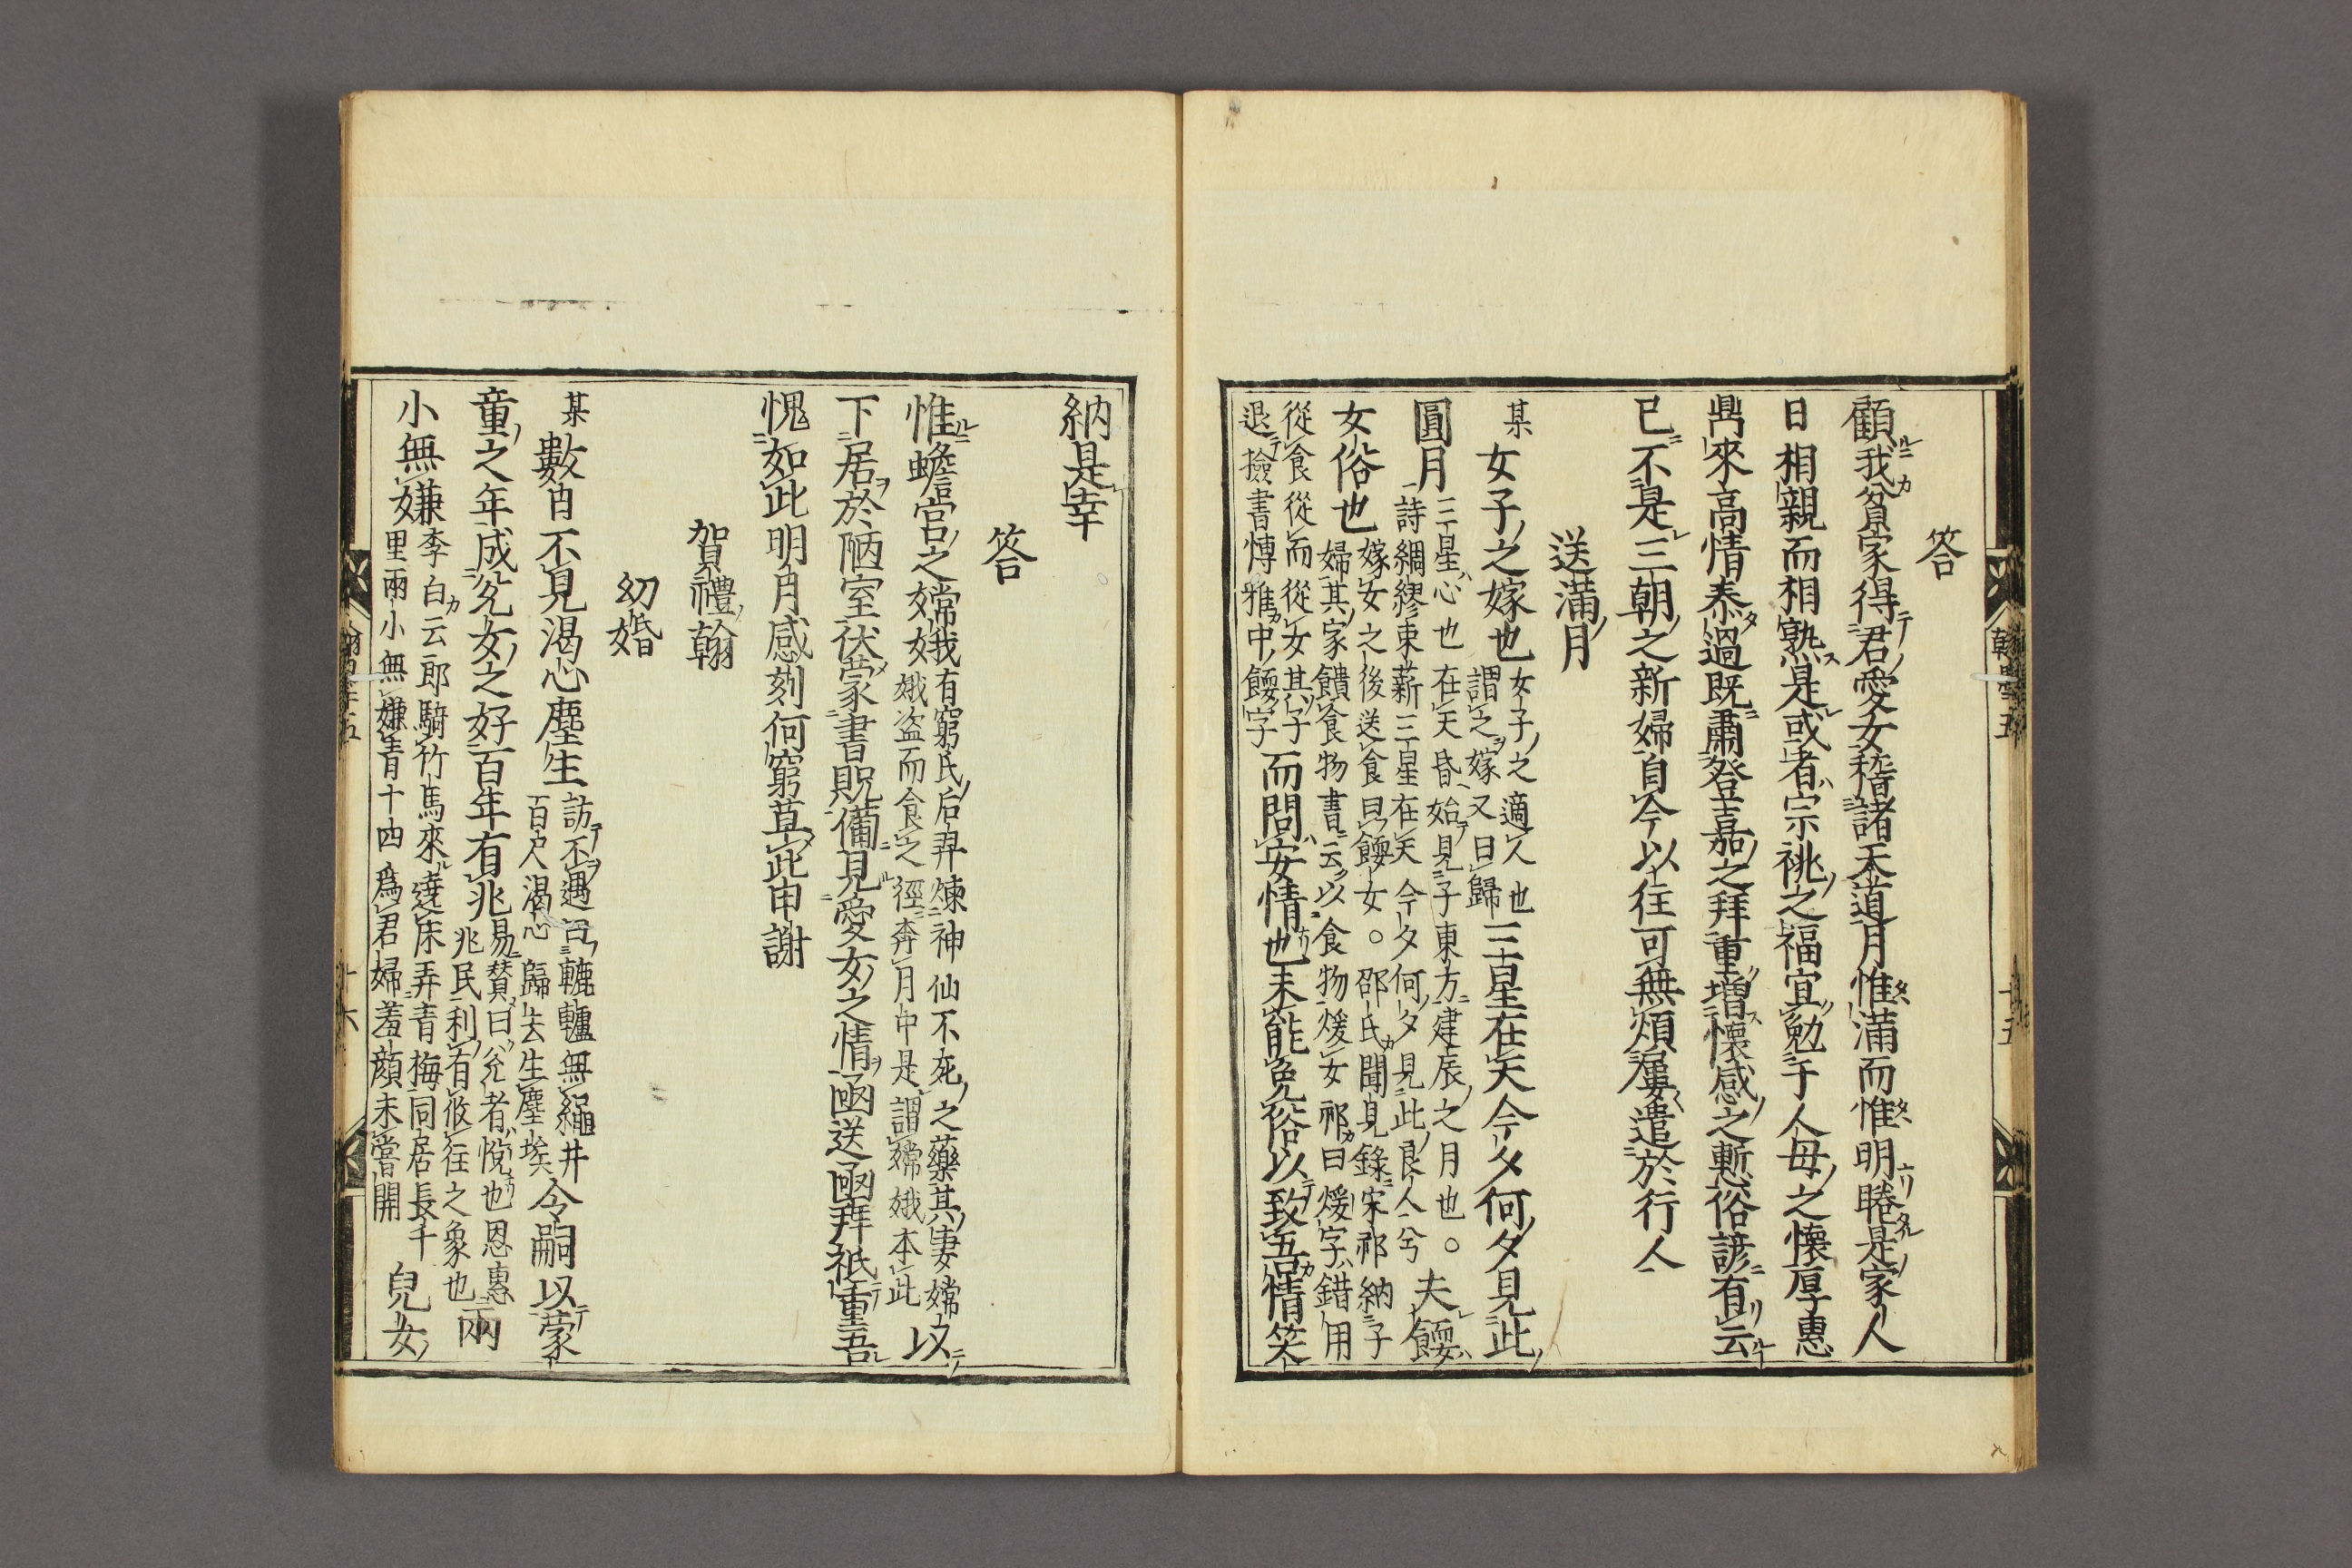 答
顧我貧家得君愛女稽諸天道月惟滿而惟明睠是家人
日相親而相熟是或者宗祧之福宜勉于人母之懷厚惠
鼎來高情泰過既肅登嘉之拜重增懷感之慙俗諺有云
已不是三朝之新婦自今以往可無煩屢遣於行人
送滿月
某女子之嫁也女子之適人也謂之嫁又曰歸三星在天今夕何夕見此
圓月三星心也在天昏始見子東方建辰之月也。詩綢繆束薪三星在天今夕何夕見此良人兮夫餪
女俗也嫁女之後送食曰餪女。邵氏聞見錄宋祁納子婦其家饋食物書云以食物煖女祁曰煖字錯用
從食從而從女其子退撿書愽雅中餪字而問安情也未能免俗以致吾情笑
納是幸
答
惟蟾宮之嫦娥有窮氏后羿煉神仙不死之藥其妻嫦娥盗而食之徑奔月中是謂嫦娥本此以
下居於陋室伏蒙書貺備見愛女之情函送函拜祇重吾
愧如此明月感刻何窮草此申謝
賀禮翰
幼婚
某數日不見渴心塵生訪不遇百尺渴心歸去生塵埃轆轤無繩井令嗣以蒙
童之年成兊女之好百年有兆易賛曰兊者悅也恩惠兆民利有攸往之象也兩
小無嫌李白云郎騎竹馬來遶床弄青梅同居長干里兩小無嫌猜十四爲君婦羞顔未嘗開兒女